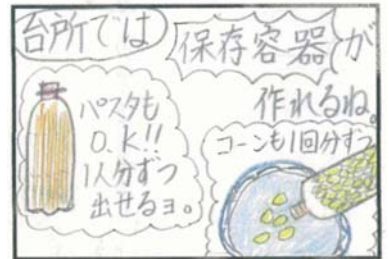 台所では
保存容器が
作れるね。
パスタも
O.K!!
1人分ずつ
出せるヨ。
コーンも1回分ずつ